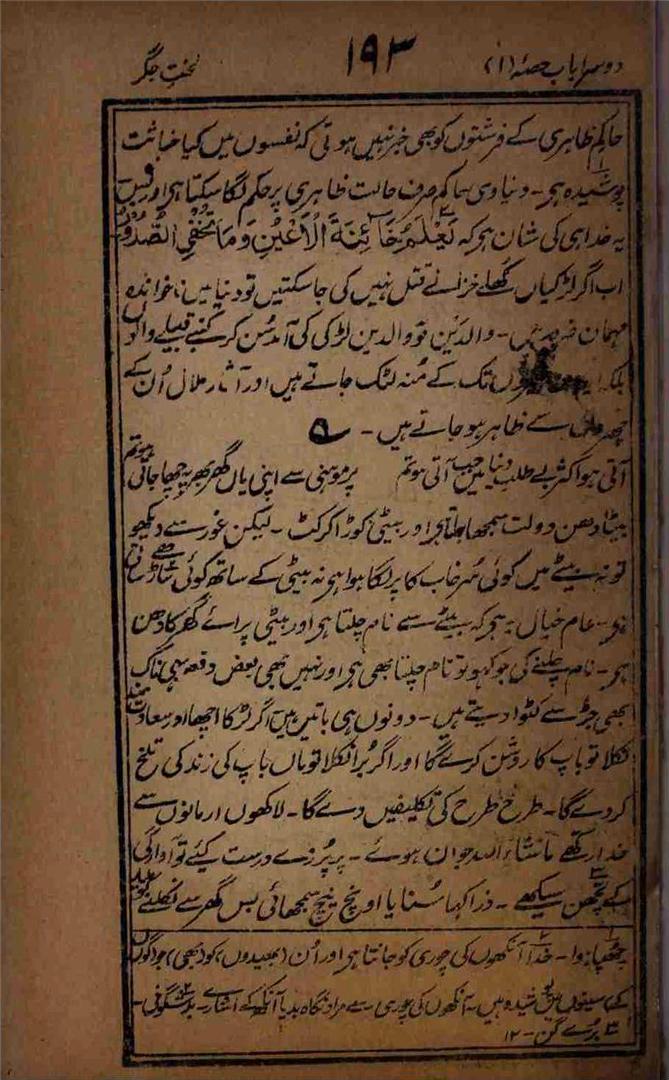 دوسرا باب حصہٴ (۱) ۱۹۳ لختِ جگر
حاکم ظاہری کے فرشتوں کو بھی خبر نہیں ہوتی کہ نفسوں میں کیا خباثت
پوشیدہ ہی۔ دنیاوی حاکم صرف حالت ظاہری پر حکم لگا سکتا ہی اور بس
یہ خدا ہی کی شان ہی کہ يَعْلَمُ خَائِنَةَ الْأَعْيُنِ وَمَا تُخْفِي الصُّدُوْرُ
اب اگر لڑکیاں کھلے خزانے قتل نہیں کی جا سکتیں تو دنیا میں ناخواندہ
مہمان ضرور ہیں۔ والدین تو والدین لڑکی کی آمد سُن کر کنبے قبیلے والوں
بلکہ تک کے مُنہ لٹک جاتے ہیں اور آثار ملال اُن کے
سے ظاہر ہو جاتے ہیں۔ ؎
آتی ہو اکثر بے طلب دنیا میں جب آتی ہو تم پر موہنی سے اپنی یاں گھر بھر پہ چھا جاتی ہو تم
بیٹا دھن دولت سمجھا جاتا ہی اور بیٹی کوڑا کرکٹ۔ لیکن غور سے دیکھو
تو نہ بیٹے میں کوئی سُرخاب کا پر لگا ہوا ہی نہ بیٹی کے ساتھ کوئی
ہی۔ عام خیال یہ ہی کہ بیٹے سے نام چلتا ہی اور بیٹی پرائے گھر کا دھن
ہی۔ نام چلنے کی جو کہو تو نام چلتا بھی ہی اور نہیں بھی بعض دفعہ یہی ناک
بھی جڑ سے کٹوا دیتے ہیں۔ دونوں ہی باتیں ہیں اگر لڑکا اچھا اور سعادت مند
نکلا تو باپ کا روشن کرے گا اور اگر بُرا نکلا تو ماں باپ کی زندگی تلخ
کر دے گا۔ طرح طرح کی تکلیفیں دے گا۔ لاکھوں ارمانوں سے
خدا رکھے ماشاء اللہ جوان ہوئے۔ پر پرزے درست کیئے تو آوارگی
کے لچھن سیکھے۔ ذرا کہا سُنایا اونچ نیچ سمجھائی بس گھر سے نکلنے کو
چھپا ہوا۔ خدا آنکھوں کی چوری کو جانتا ہی اور اُن (بھیدوں) کو (بھی) جو لوگوں
کے سینوں میں پوشیدہ ہیں۔ آنکھوں کی چوری سے مراد نگاہ بد یا آنکھ کے اشارے۔ بدشگونی۔
۳ بُرے گن۔ ۱۲